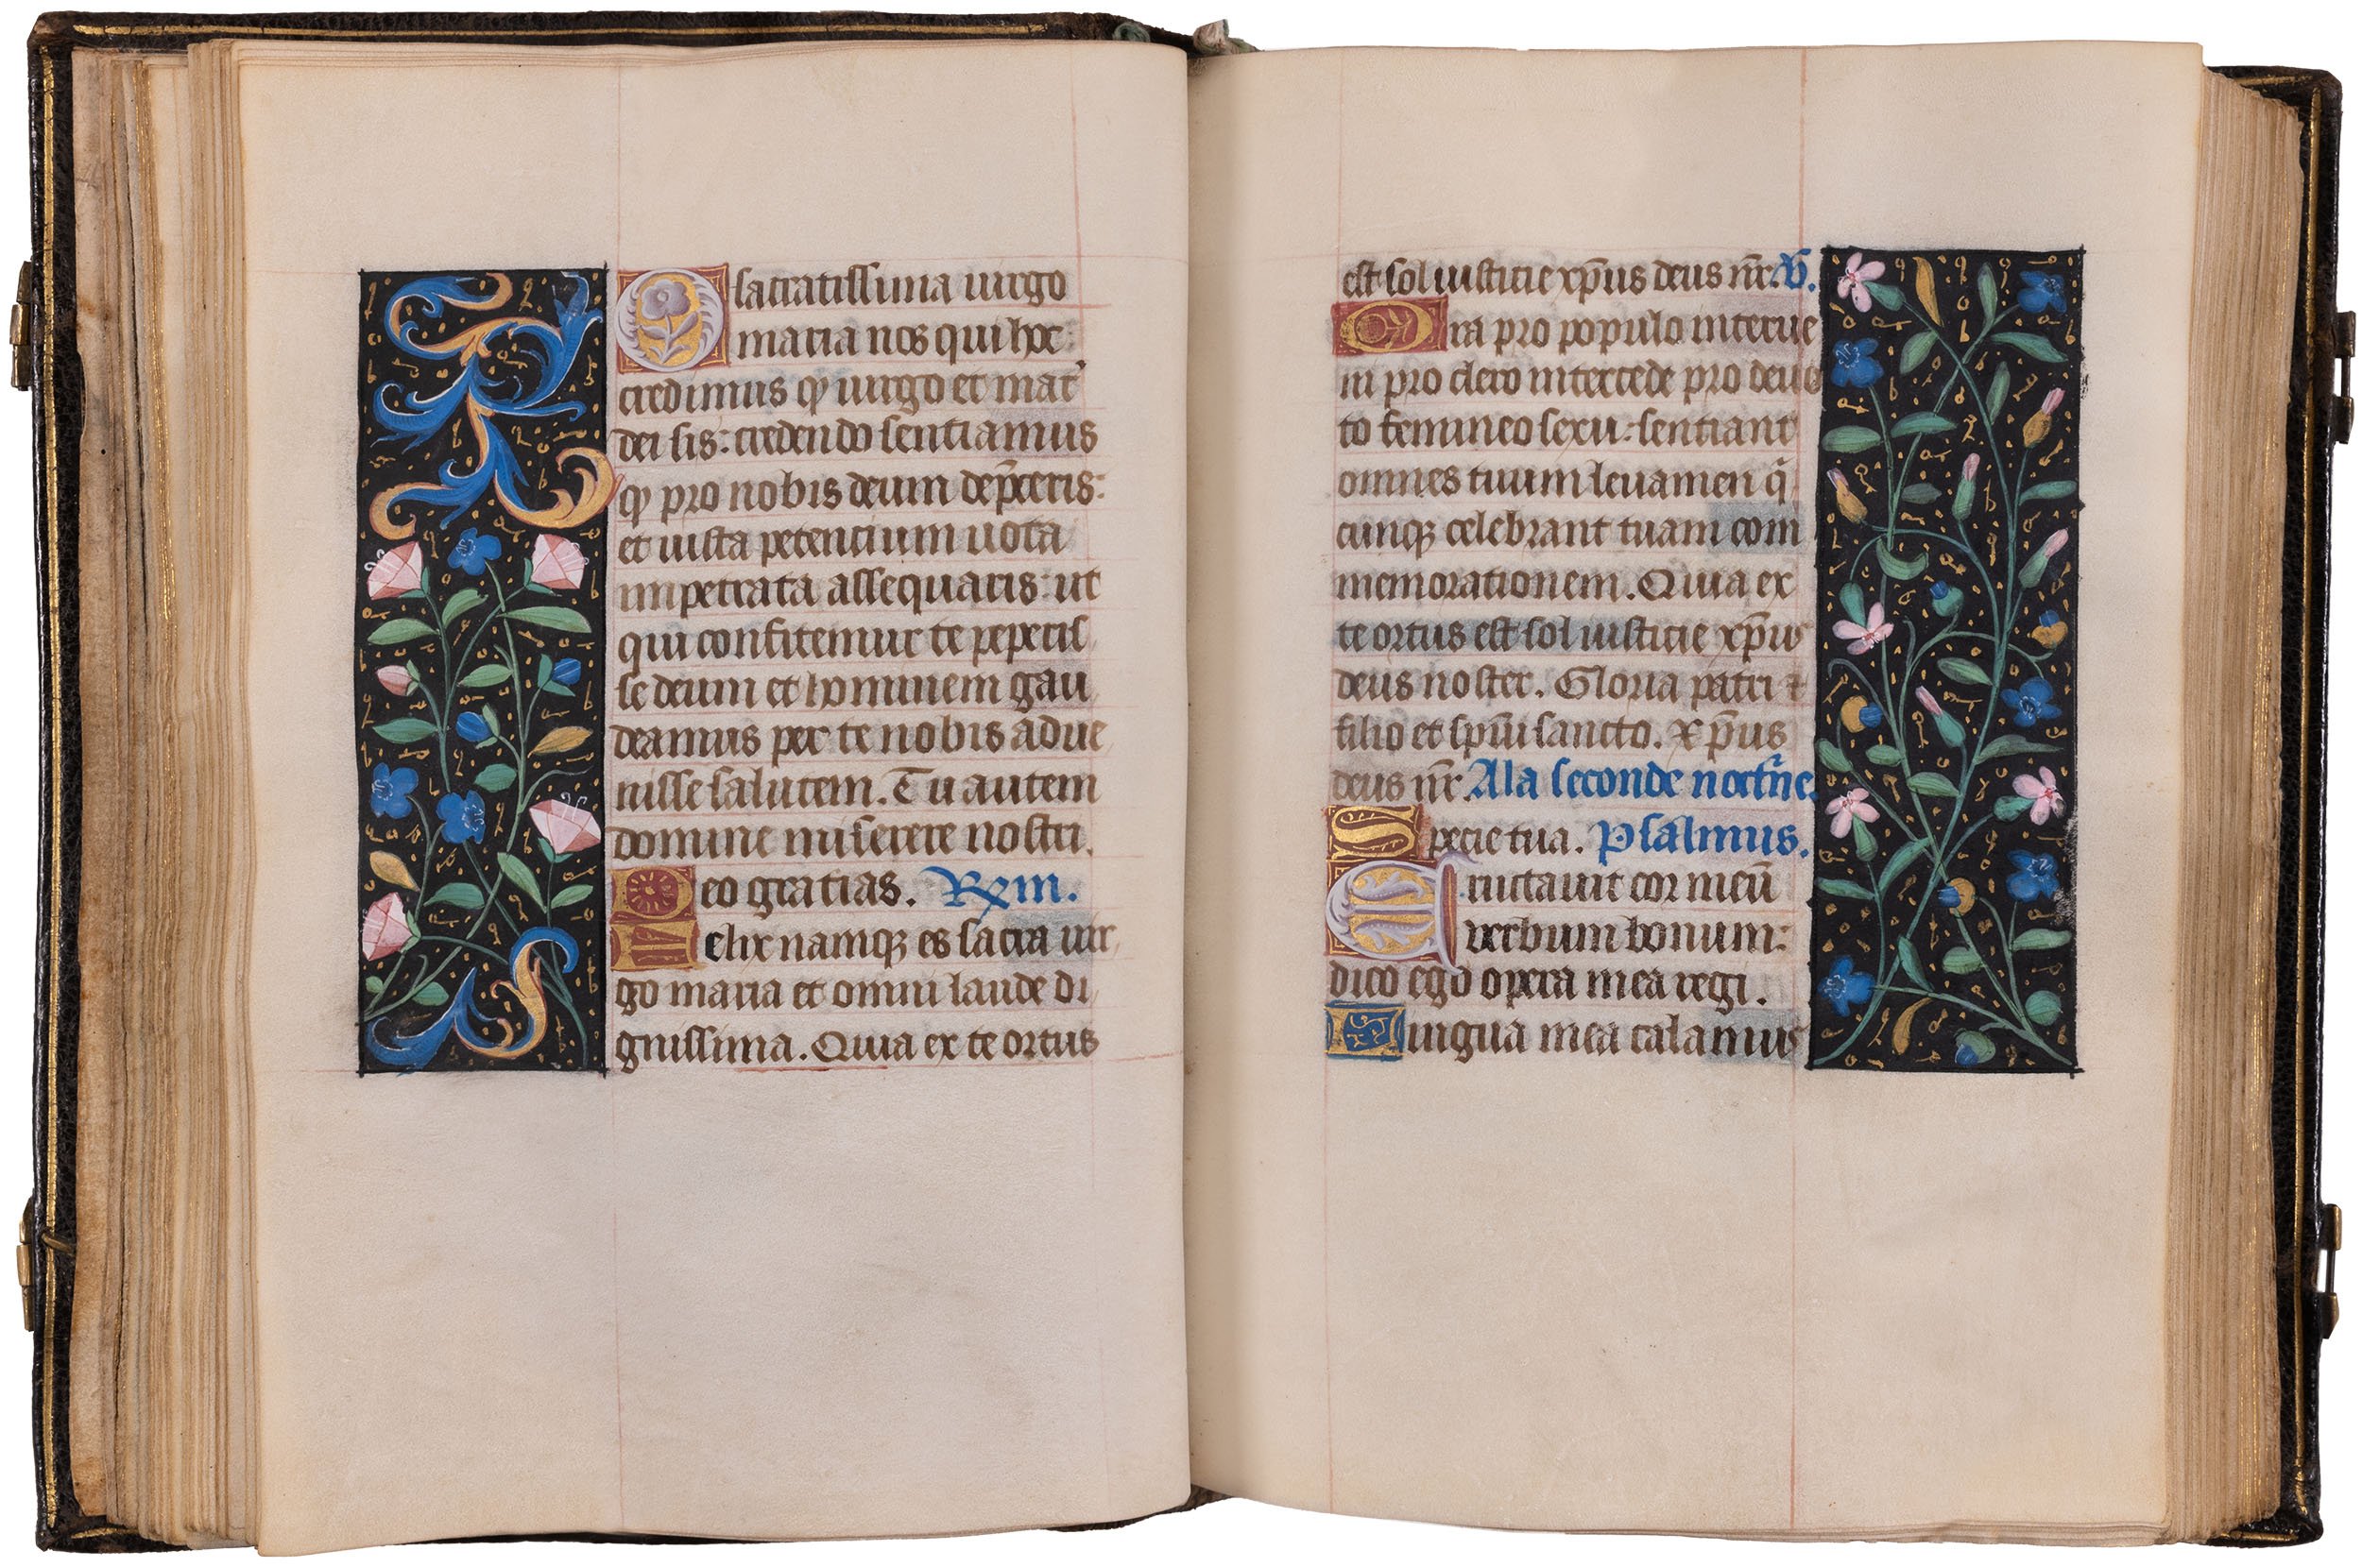 O sacratissima uirgo
maria nos qui hoc
credimus qƺ uirgo et mat᾽
dei sis: credendo sentiamus
qƺ pro nobis deum dep̄ceris:
et iusta petencium uota
impetrata assequaris: ut
qui confitemur te peperis
se deum et hominem gau
deamus per te nobis adue
nisse salutem. Tu autem
domine miserere nostri.
Deo gratias. Rx̄m.
Felix namqƺ es sacra uir
go maria et omni laude di
gnissima. Quia ex te ortus
est sol iusticie xp̄us deus nr̄. V̄.
Ora pro populo interue
ni pro clero intercede pro deuo
to femineo sexu: sentiant
omnes tuum leuamen q̄
cunqƺ celebrant tuam com
memorationem. Quia ex
te ortus est sol iusticie xp̄us
deus noster. Gloria patri ⁊
filio et sp̄ui sancto. Xp̄us
deus nr̄. A la seconde noct̄ne.
Specie tua. Psalmus.
Eructauit cor meū
verbum bonum:
dico ego opera mea regi.
Lingua mea calamus